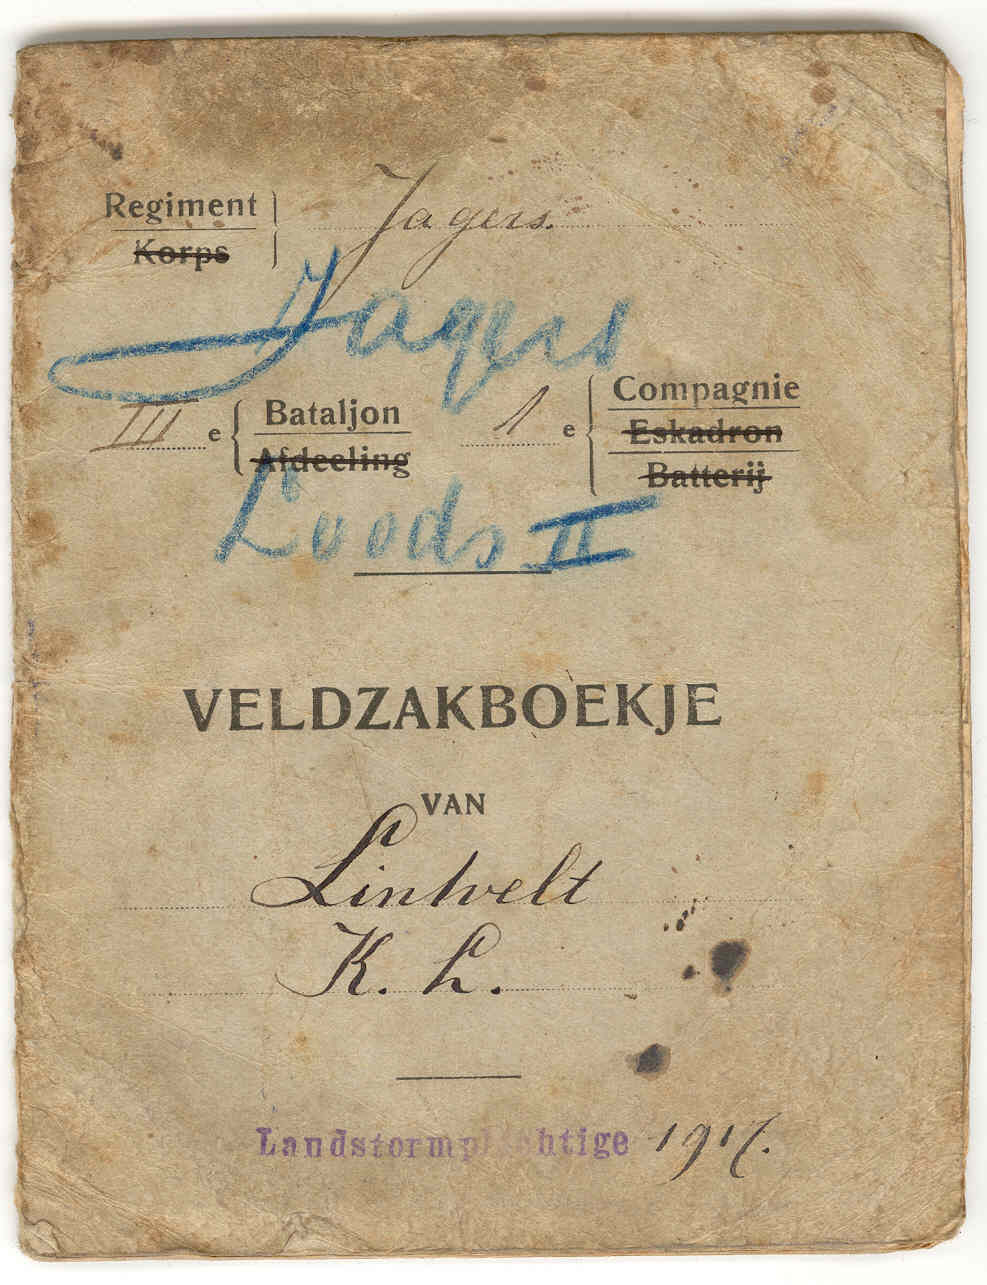 Regiment
Korps
Jagers.
Jagers
III e
Bataljon
Afdeeling
1 e
Compagnie
Eskadron
Batterij
Loods II
VELDZAKBOEKJE
VAN
Lintvelt
K. L.
Landstormplichtige 1917.